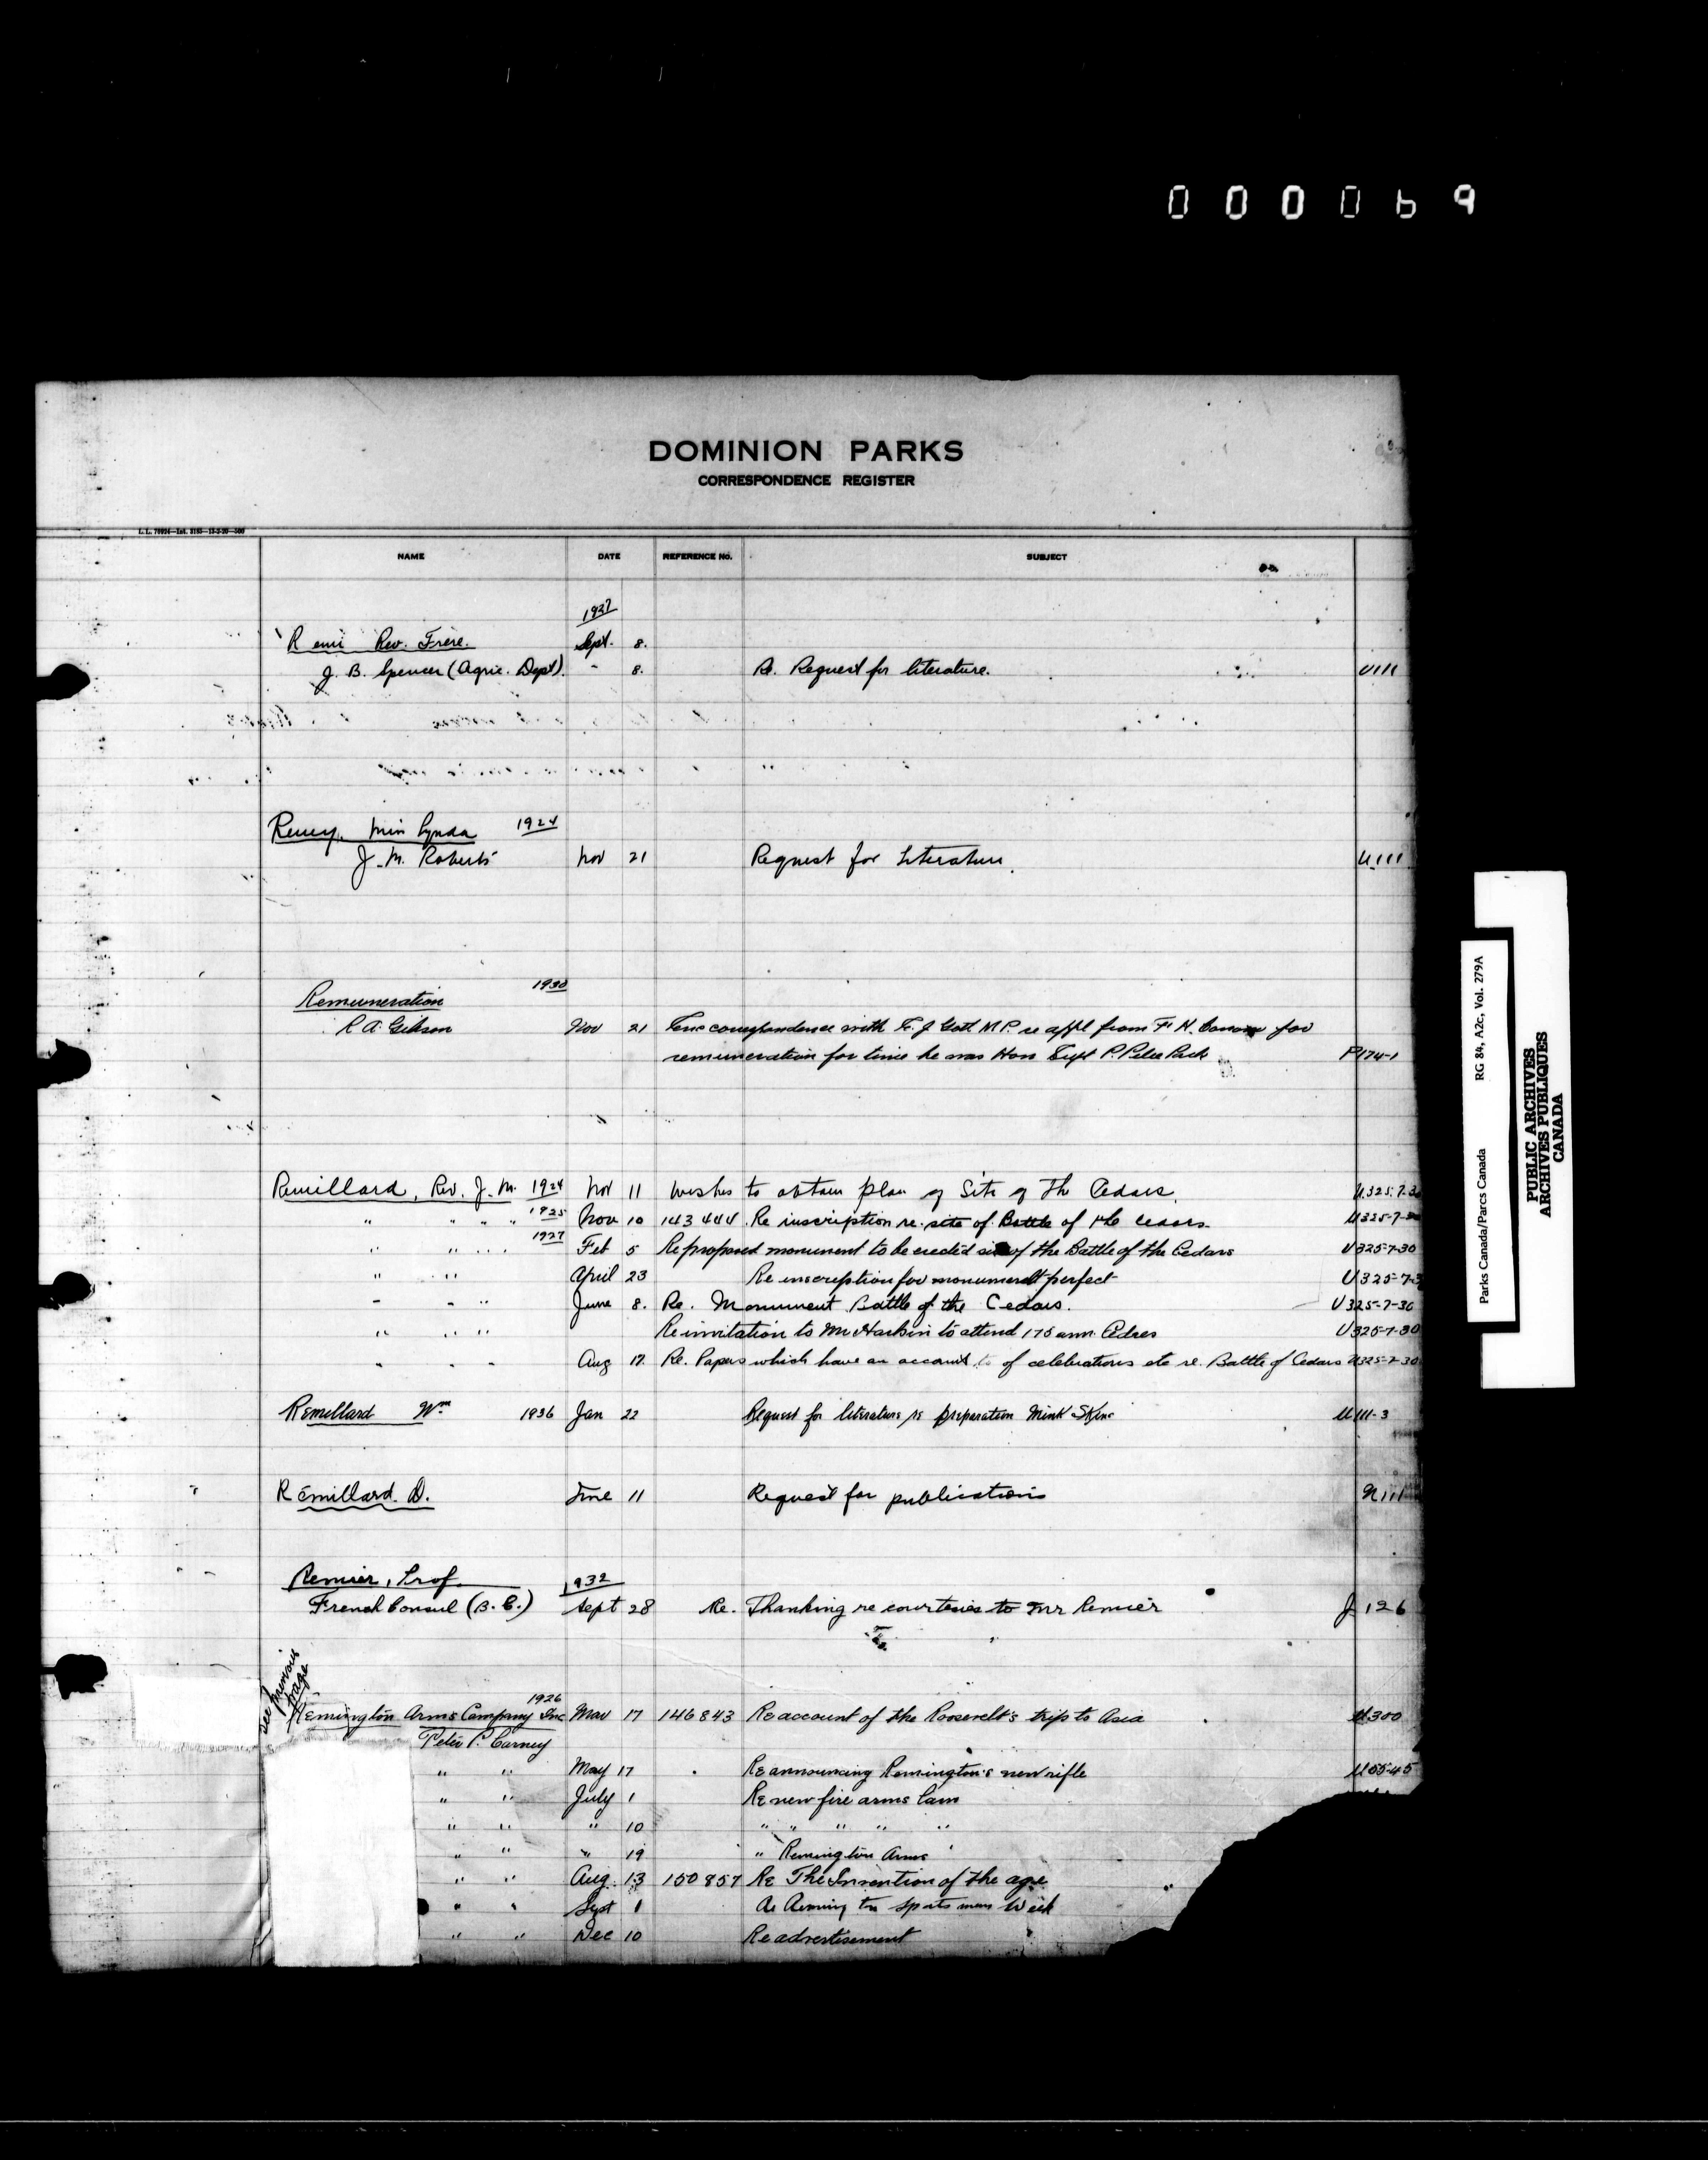 000069
DOMINION PARKS
CORRESPONDENCE REGISTER
NAME DATE REFERENCE No. SUBJECT
Remi Rev. Frere. Sept. 8.
J. B. Spencer (Agric. Dept). " 8. Re. Request for literature. U111
1924
J. M. Roberts Nov 21 Request for Literature. U111
Remuneration 1930
R A. Gibson Nov 21 correspondence with M.P. re appl from F. H. for
remuneration for time he was Hon Supt P. Pelee Park P174-1
Remillard, Rev. J. M. 1924 Nov 11 Wishes to obtain plan of Site of The Cedars. U325-7-30
" " " " 1925 Nov 10 143444 Re inscription re. site of Battle of the Cedars U325-7-30
" " " " 1927 Feb 5 Re proposed monument to be erected of the Battle of the Cedars U325-7-30
" " " April 23 Re inscription for monument perfect U325-7-3
" " " June 8. Re. Monument Battle of the Cedars. U325-7-30
" " " Re invitation to Mr Harkin to attend 175 ann. Cedres U325-7-30
" " " Aug 17. Re. Papers which have an account of celebrations etc re. Battle of Cedars U325-7-30
Remillard Wm 1936 Jan 22 Request for literature re preparation Mink Skins U111-3
Remillard. D. June 11 Request for publications U111
Remier, Prof. 1932
French Consul (B. C.) Sept 28 Re. Thanking re courtesies to Mr Remier J 126
see previous page
1926
Remington Arms Company Inc Mar 17 146843 Re account of the Roosevelt's trip to Asia U300
Peter P. Carney
" " May 17 Re announcing Remington's new rifle U55-45
" " July 1 Re new fire arms law
" " " 10 " " " " "
" " " 19 " Remington Arms
" " Aug. 13 150857 Re The Invention of the age
" " Sept 1 Re Remington Sportsmen Week
" " Dec 10 Re advertisement
Parks Canada/Parcs Canada RG 84, A2c, Vol. 279A
PUBLIC ARCHIVES
ARCHIVES PUBLIQUES
CANADA